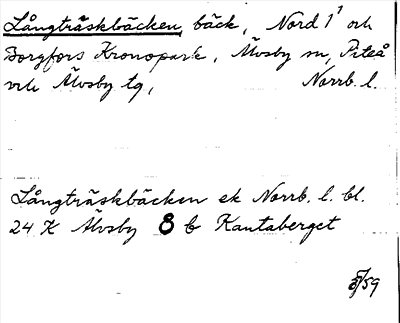 Långträskbäcken, bäck, Nord 1¹ och
Borgfors Kronopark, Älvsby sn, Piteå
och Älvsby tg, Norrb. l.
Långträskbäcken ek Norrb. l. bl.
24 K Älvsby 8 b Kantaberget
/59